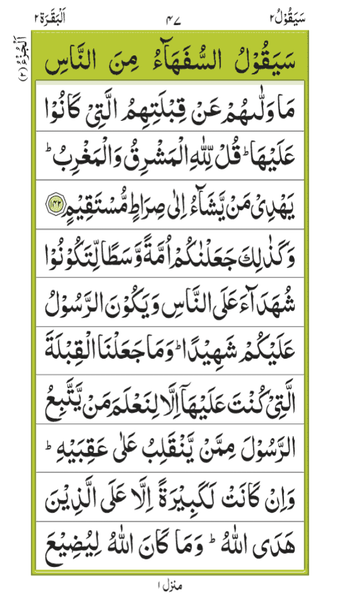 سَيَقُوۡلُ٢ ٤٧ اَلۡبَقَرَة٢
اَلۡجُزۡءُ (٢)
سَيَقُوۡلُ السُّفَهَآءُ مِنَ النَّاسِ
مَا وَلّٰٮهُمۡ عَنۡ قِبۡلَتِهِمُ الَّتِىۡ كَانُوۡا
عَلَيۡهَا ؕ قُلۡ لِّلّٰهِ الۡمَشۡرِقُ وَالۡمَغۡرِبُ ؕ
يَهۡدِىۡ مَنۡ يَّشَآءُ اِلٰى صِرَاطٍ مُّسۡتَقِيۡمٍ ﴿١٤٢﴾
وَكَذٰلِكَ جَعَلۡنٰكُمۡ اُمَّةً وَّسَطًا لِّتَکُوۡنُوۡا
شُهَدَآءَ عَلَى النَّاسِ وَيَكُوۡنَ الرَّسُوۡلُ
عَلَيۡكُمۡ شَهِيۡدًا ؕ وَمَا جَعَلۡنَا الۡقِبۡلَةَ
الَّتِىۡ كُنۡتَ عَلَيۡهَآ اِلَّا لِنَعۡلَمَ مَنۡ يَّتَّبِعُ
الرَّسُوۡلَ مِمَّنۡ يَّنۡقَلِبُ عَلٰى عَقِبَيۡهِ ؕ
وَاِنۡ كَانَتۡ لَكَبِيۡرَةً اِلَّا عَلَى الَّذِيۡنَ
هَدَى اللّٰهُ ؕ وَمَا كَانَ اللّٰهُ لِيُضِيۡعَ
منزل ١